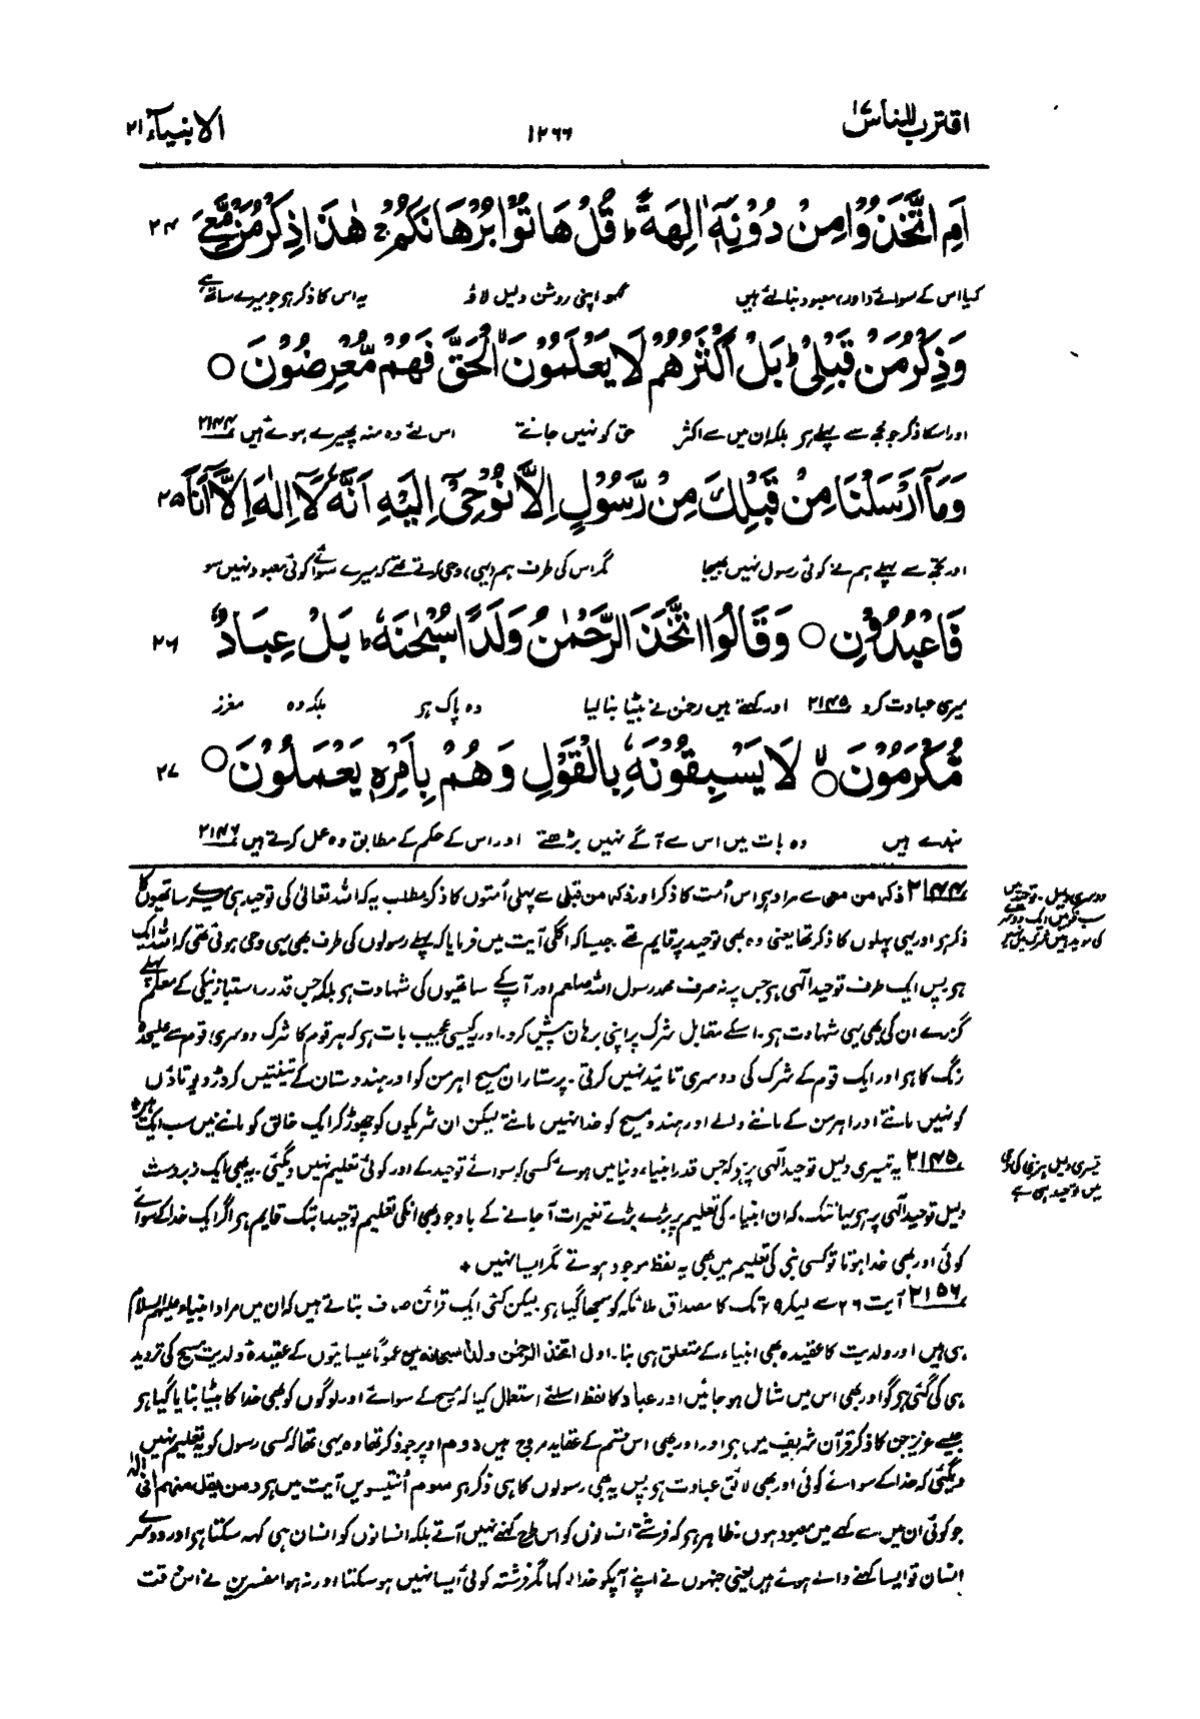 اقترب للناس ۱۷
۱۲۶۶
الانبیآء ۲۱
اَمِ اتَّخَذُوْا مِنْ دُوْنِهٖۤ اٰلِهَةً ؕ قُلْ هَاتُوْا بُرْهَانَكُمْ ۚ هٰذَا ذِكْرُ مَنْ مَّعِیَ ۲۴
کیا اس کے سوائے (اور) معبود بنا لئے ہیں کہو اپنی روشن دلیل لاؤ یہ اس کا ذکر ہو جو میرے ساتھ ہے
وَذِكْرُ مَنْ قَبْلِیْ ؕ بَلْ اَكْثَرُهُمْ لَا یَعْلَمُوْنَ ۙ الْحَقَّ فَهُمْ مُّعْرِضُوْنَ ○
اور اسکا ذکر جو مجھ سے پہلے ہو بلکہ ان میں سے اکثر حق کو نہیں جانتے اس لئے وہ منہ پھیرے ہوئے ہیں ۲۱۴۴
وَمَاۤ اَرْسَلْنَا مِنْ قَبْلِكَ مِنْ رَّسُوْلٍ اِلَّا نُوْحِیْۤ اِلَیْهِ اَنَّهٗ لَاۤ اِلٰهَ اِلَّاۤ اَنَا ۲۵
اور تجھ سے پہلے ہم نے کوئی رسول نہیں بھیجا مگر اس کی طرف ہم (یہی) وحی کرتے تھے کہ میرے سوائے کوئی معبود نہیں سو
فَاعْبُدُوْنِ ○ وَقَالُوا اتَّخَذَ الرَّحْمٰنُ وَلَدًا سُبْحٰنَهٗ ؕ بَلْ عِبَادٌ ۲۶
میری عبادت کرو ۲۱۴۵ اور کہتے ہیں رحمٰن نے بیٹا بنا لیا وہ پاک ہو بلکہ وہ معزز
مُّكْرَمُوْنَ ○ۙ لَا یَسْبِقُوْنَهٗ بِالْقَوْلِ وَهُمْ بِاَمْرِهٖ یَعْمَلُوْنَ ○ ۲۷
بندے ہیں وہ بات میں اس سے آگے نہیں بڑھتے اور اس کے حکم کے مطابق وہ عمل کرتے ہیں ۲۱۴۶
۲۱۴۴ ذکر من معی سے مراد ہو اس اُمت کا ذکر اور ذکر من قبلی سے پہلی اُمتوں کا ذکر مطلب یہ کہ اللہ تعالیٰ کی توحید ہی میرے ساتھیوں کا
ذکر ہو اور یہی پہلوں کا ذکر تھا یعنی وہ بھی توحید پر قایم تھے جیسا کہ اگلی آیت میں فرمایا کہ پہلے رسولوں کی طرف بھی یہی وحی ہوتی تھی کہ اللہ ایک
ہو پس ایک طرف توحید الٰہی ہو جس پر نہ صرف محمد رسول اللہ صلعم اور آپ کے ساتھیوں کی شہادت ہو بلکہ جس قدر راستباز نیکی کے معلم پہلے
گزرے ان کی بھی یہی شہادت ہو۔ اسکے مقابل شرک پر اپنی برہان پیش کرو۔ اور یہ کیسی عجیب بات ہو کہ ہر قوم کا شرک دوسری قوم سے علیحدہ
رنگ کا ہو اور ایک قوم کے شرک کی دوسری تائید نہیں کرتی۔ پرستاران مسیح اہرمن کو اور ہندوستان کے تینتیس کروڑ دیوتاؤں
کو نہیں مانتے اور اہرمن کے ماننے والے اور ہندو مسیح کو خدا نہیں مانتے لیکن ان شریکوں کو چھوڑ کر ایک خالق کو ماننے میں سب ایک ہیں +
۲۱۴۵ یہ تیسری دلیل توحید الٰہی پر ہو کہ جس قدر انبیاء دنیا میں ہوئے کسی کو سوائے توحید کے اور کوئی تعلیم نہیں دیگئی۔ یہ بھی ایک زبردست
دلیل توحید الٰہی پر ہو یہانتک کہ ان انبیاء کی تعلیم پر بڑے بڑے تغیرات آ جانے کے باوجود بھی انکی تعلیم توحید ابتک قایم ہو اگر ایک خدا کے سوائے
کوئی اور بھی خدا ہوتا تو کسی نبی کی تعلیم میں بھی یہ لفظ موجود ہوتے مگر ایسا نہیں +
۲۱۵۶ آیت ۲۶ سے لیکر ۲۹ تک کا مصداق ملائکہ کو سمجھا گیا ہو لیکن کئی ایک قرائن صاف بتاتے ہیں کہ ان میں مراد انبیاء علیہم السلام
ہی ہیں اور ولدیت کا عقیدہ بھی انبیاء کے متعلق ہی بنا۔ اول اتخذ الرحمٰن ولدا سبحانہ میں عموماً عیسائیوں کے عقیدہ ولدیت مسیح کی تردید
ہی کی گئی ہو گو اور بھی اس میں شامل ہو جائیں اور عباد کا لفظ اسلئے استعمال کیا کہ مسیح کے سوائے اور لوگوں کو بھی خدا کا بیٹا بنایا گیا ہو
جیسے عزیر جن کا ذکر قرآن شریف میں ہو اور اور بھی اس قسم کے عقاید مروج ہیں دوم اوپر جو ذکر تھا وہ یہی تھا کہ کسی رسول کو یہ تعلیم نہیں
دیگئی کہ خدا کے سوائے کوئی اور بھی لائق عبادت ہو پس یہ بھی رسولوں کا ہی ذکر ہو سوم اُنتیسویں آیت میں ہو ومن یقل منہم انی الٰہ
جو کوئی ان میں سے کہے میں معبود ہوں۔ ظاہر ہو کہ فرشتے انسانوں کو اس طرح کہنے نہیں آتے بلکہ انسانوں کو انسان ہی کہہ سکتا ہو اور دوسرے
انسان تو ایسا کہنے والے ہوئے ہیں یعنی جنہوں نے اپنے آپکو خدا کہا مگر فرشتہ کوئی ایسا نہیں ہو سکتا اور نہ ہوا مفسرین نے اس وقت
دوسری دلیل۔ توحید میں
سب قومیں ایک دوسرے
کی موید ہیں شرک میں نہیں
تیسری دلیل ہر نبی کی وحی
میں توحید ہی ہے